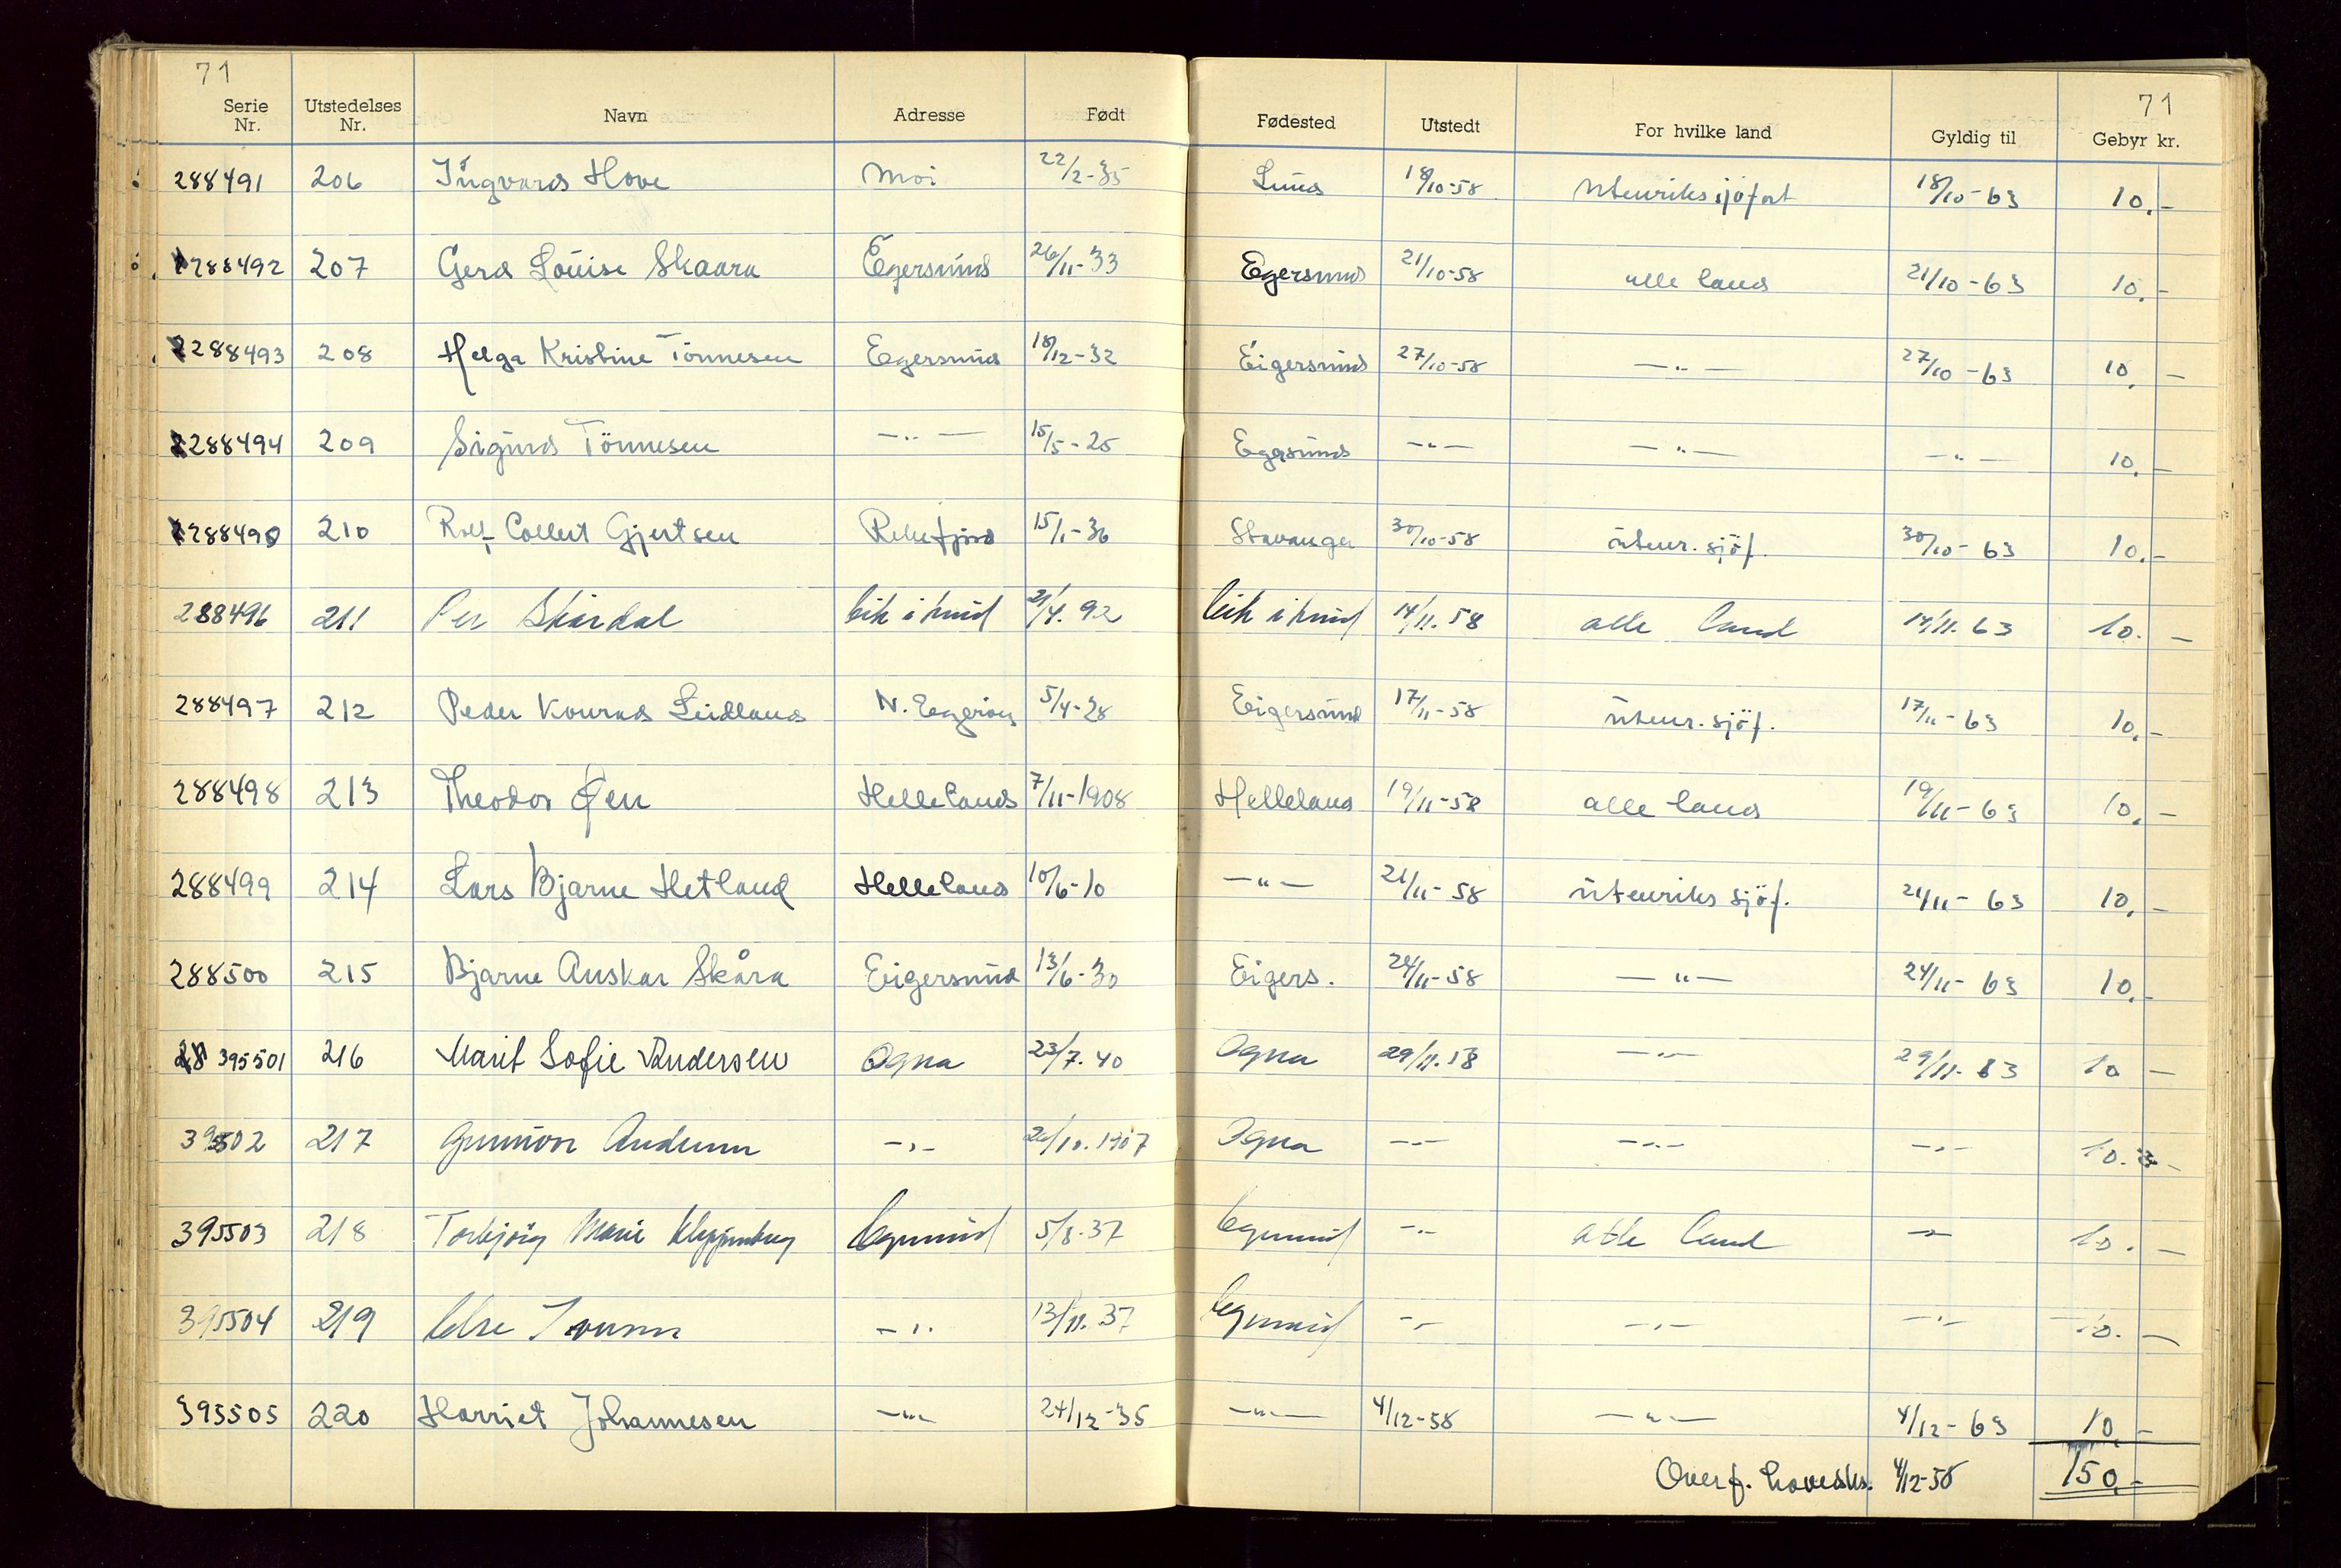 71 71
Serie Nr. Utstedelses Nr. Navn Adresse Født Fødested Utstedt For hvilke land Gyldig til Gebyr kr.
288491 206 Ingvard Hove Moi 22/2-35 Lund 18/10-58 Utenriks sjöfart 18/10-63 10,-
288492 207 Gerd Louise Skaara Egersund 26/11-33 Egersund 21/10-58 alle land 21/10-63 10,-
288493 208 Helga Kristine Tönnesen Egersund 18/12-32 Eigersund 27/10-58 -"- 27/10-63 10,-
288494 209 Sigurd Tönnesen -"- 15/5-25 Egersund -"- -"- -"- 10,-
288495 210 Rolf Collett Gjertsen Rekefjord 15/1-36 Stavanger 30/10-58 utenr. sjöf. 30/10-63 10,-
288496 211 Per Skårdal Eik i Lund 21/4. 92 Eik i Lund 14/11. 58 alle land 14/11. 63 10.-
288497 212 Peder Konrad Leidland N. Egerøy 5/4-28 Eigersund 17/11-58 utenr. sjöf. 17/11-63 10,-
288498 213 Theodor Øen Helleland 7/11-1908 Helleland 19/11-58 alle land 19/11-63 10,-
288499 214 Lars Bjarne Hetland Helleland 10/6-10 -"- 21/11-58 utenriks sjöf. 21/11-63 10,-
288500 215 Bjarne Anskar Skåra Eigersund 13/6-30 Eigers. 24/11-58 -"- 24/11-63 10,-
395501 216 Marit Sofie Andersen Ogna 23/7. 40 Ogna 29/11. 58 -"- 29/11. 63 10 -
395502 217 Gunvor Andersen -"- /10. 1907 Ogna -"- -"- -"- 10. -
395503 218 Torbjörg Marie Egersund 5/8. 37 Egersund -"- alle land -"- 10. -
395504 219 Else -"- 13/11. 37 Egersund -"- -"- -"- 10. -
395505 220 Harriet Johannesen -"- 24/12-35 -"- 4/12-58 -"- 4/12-63 10,-
Overf. hovedks. 4/12-58 150,-